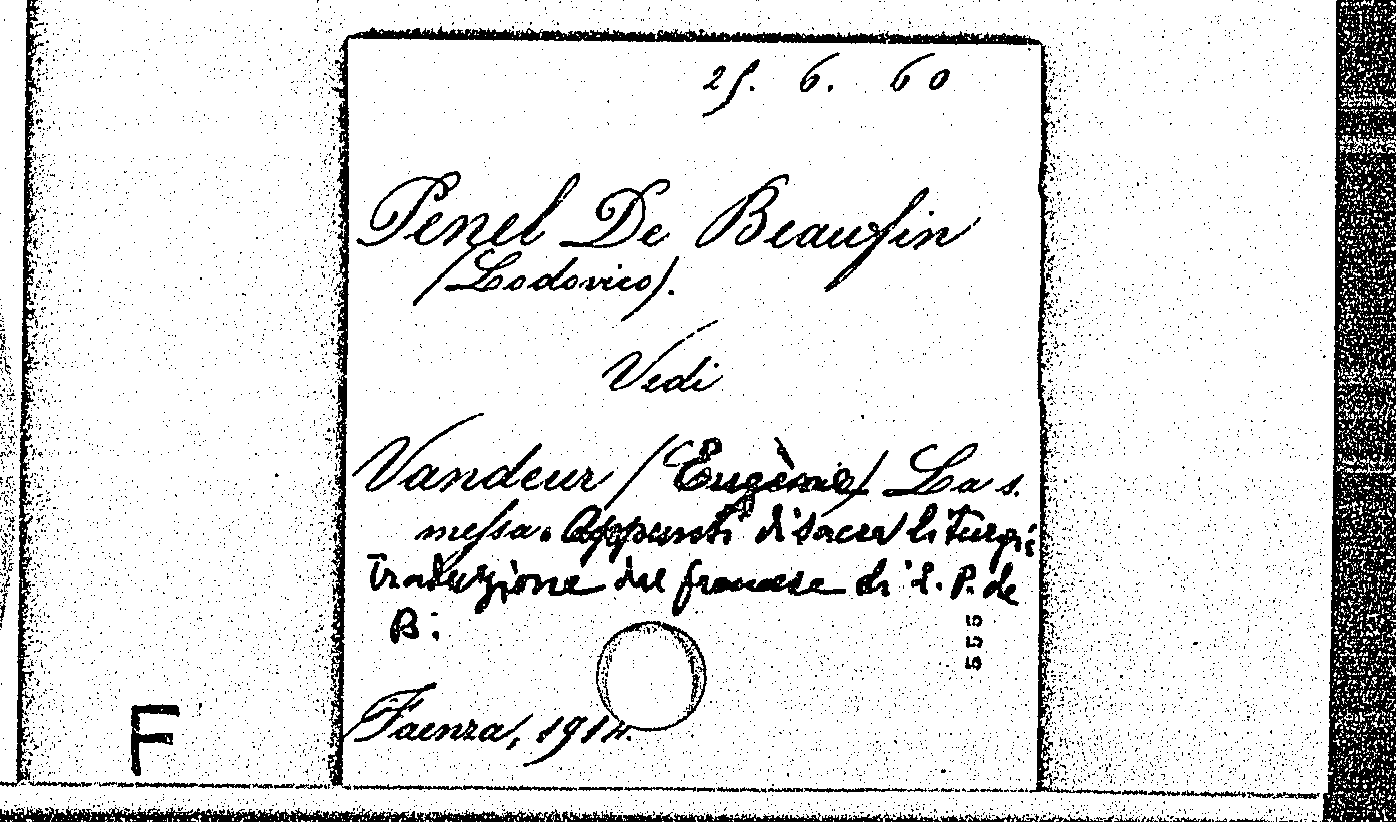 25. 6. 60
Penel De Beaufin
(Lodovico).
Vedi
Vandeur (Eugène) La s.
messa. Appunti di sacra liturgi:
traduzione dal francese di L. P. de
B.:
Faenza, 1914.
F